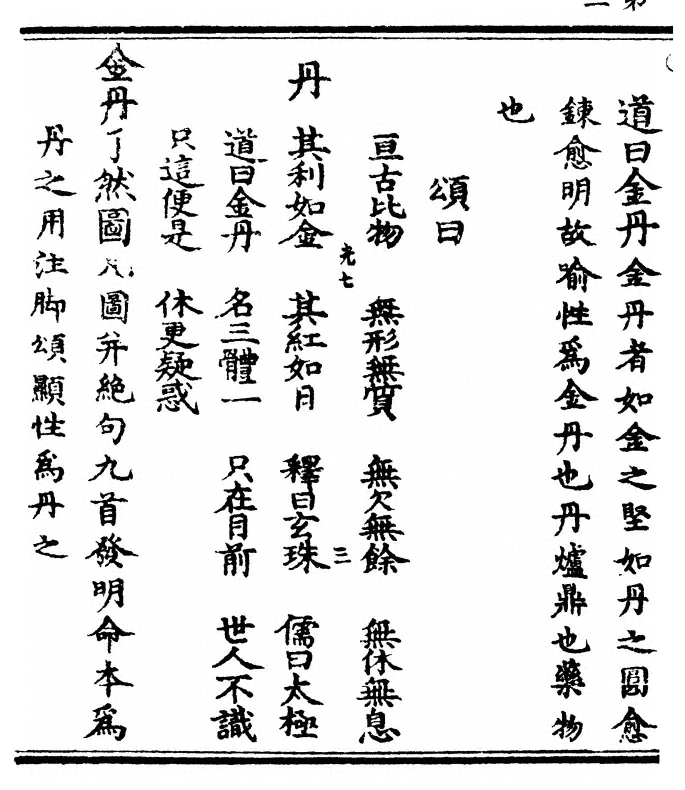 道曰金丹金丹者如金之堅如丹之圓愈
鍊愈明故喻性爲金丹也丹爐鼎也藥物
也
頌曰
亘古比物　無形無質　無欠無餘　無休無息
光七　三
丹　其利如金　其紅如日　釋曰玄珠　儒曰太極
道曰金丹　名三體一　只在目前　世人不識
只這便是　休更疑惑
金丹了然圖凡圖并絶句九首發明命本爲
丹之用注脚頌顯性爲丹之